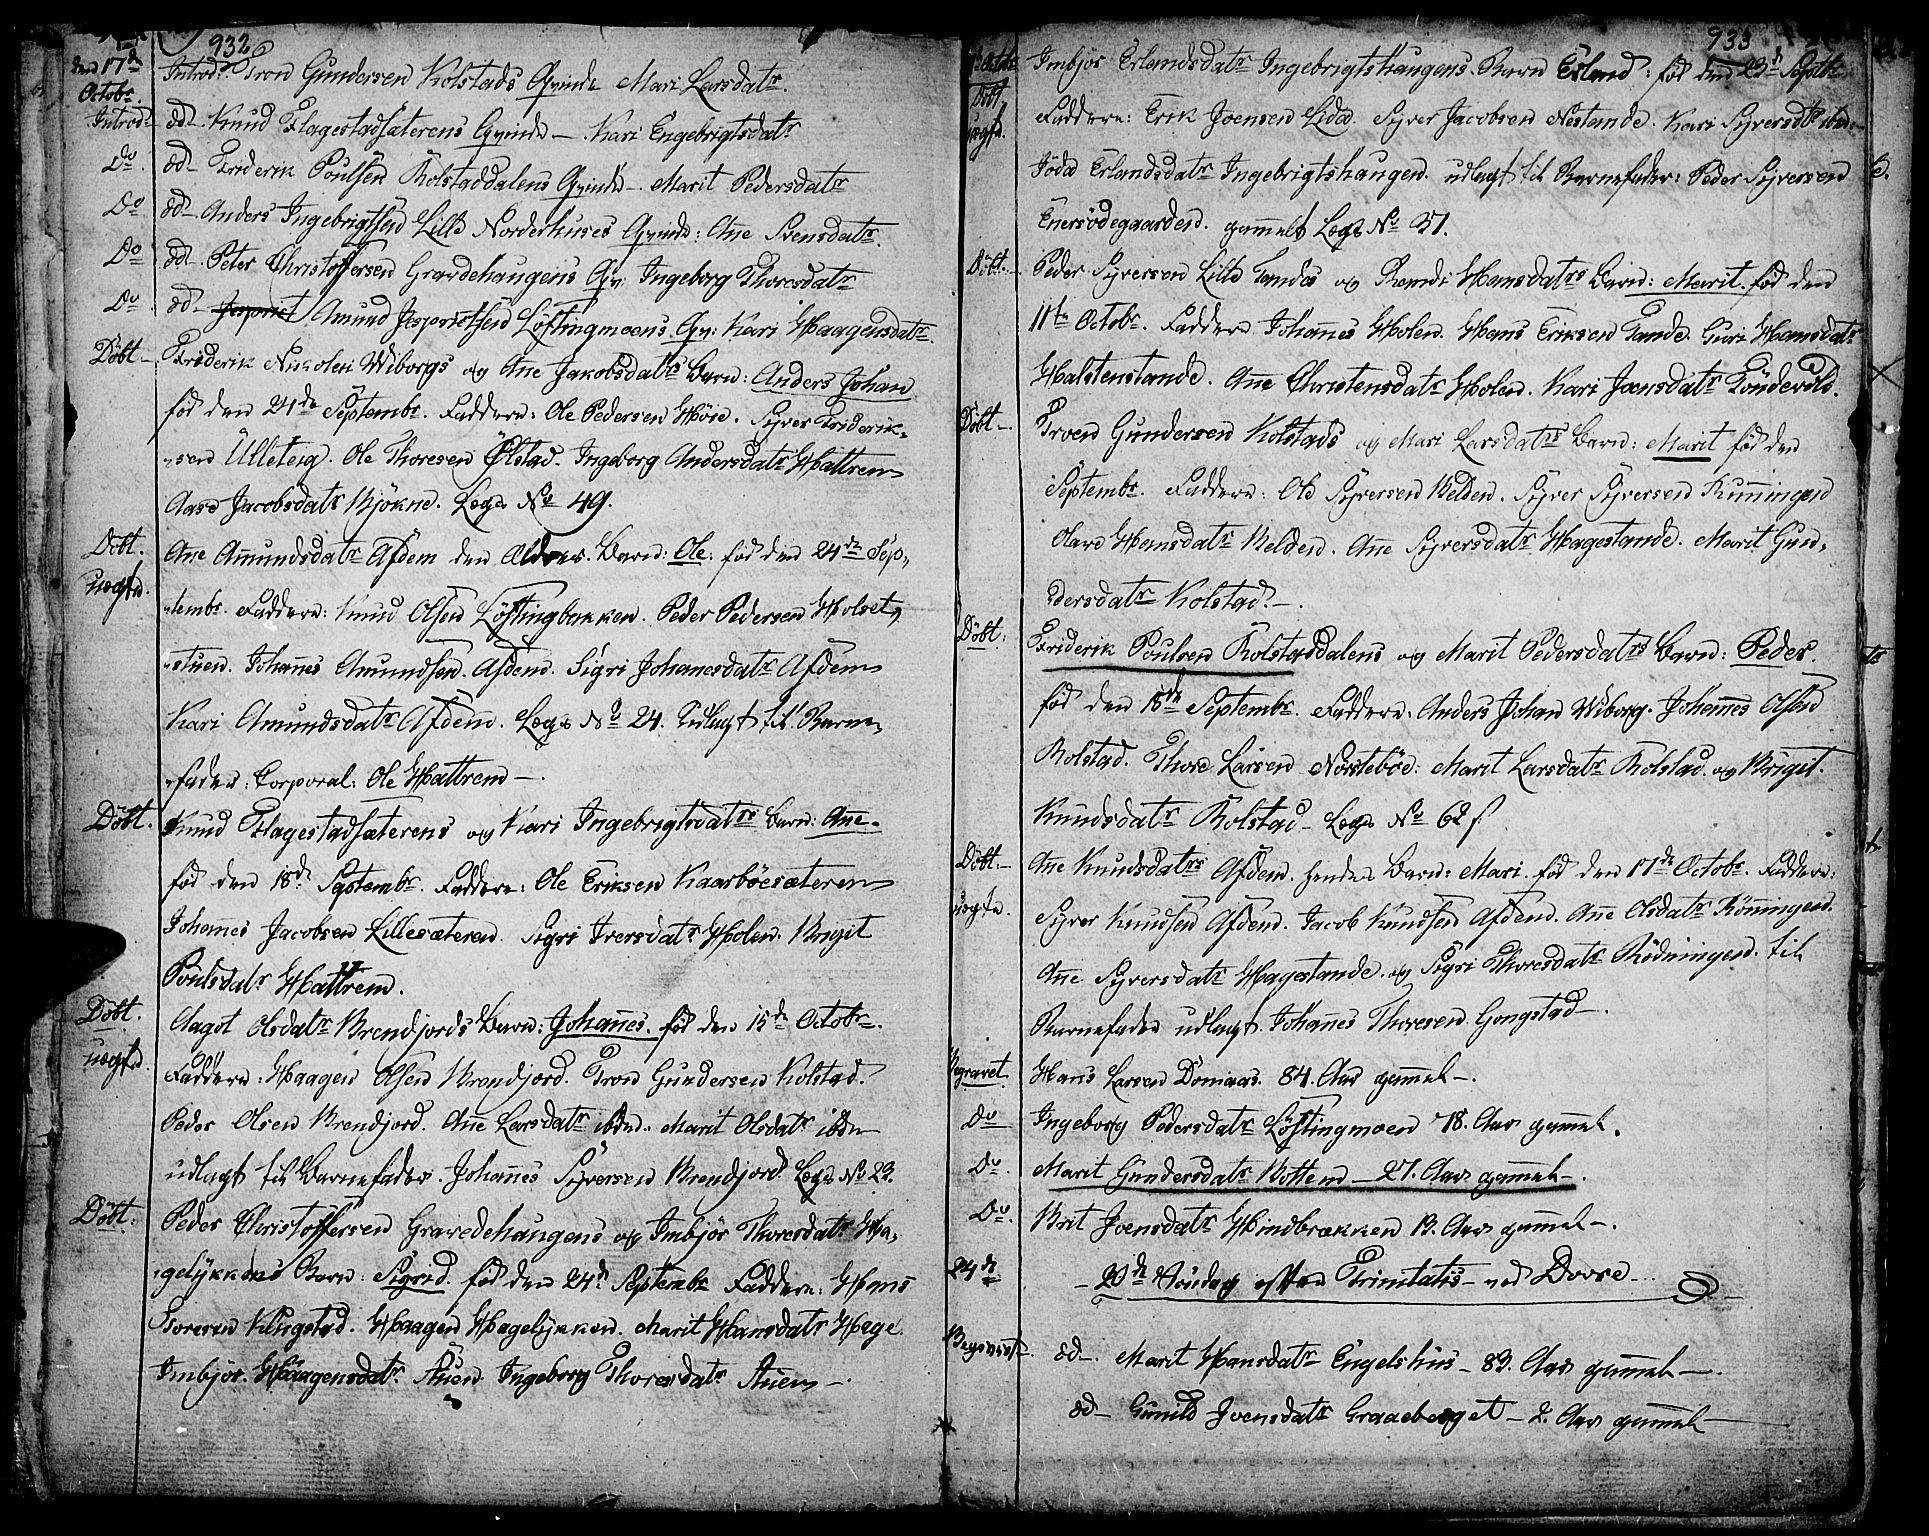 932
den 17de Octobr. Introd. Tron Gundersen Kolstads Qvinde Mari Larsdatr.
Introd. dd- Knud Flagestadsæterens Qvinde - Kari Engebrigtsdatr
Do. dd- Friderik Poulsen Kolstaddalens Qvinde - Marit Pedersdatr
Do dd- Anders Ingebrigtsen Lille Norderhuses Qvinde: Ane Svensdatr.
Do dd- Peter Christoffersen Gravdehaugens Qv: Ingeborg Thoresdatr
Do dd- Amund Jesprictsen Löftingmoens Qv: Kari Haagensdatr.
Döbt - Friderik Nikolai Wiborgs og Ane Jakobsdatrs Barn: Anders Johan
fød den 24de Septembr. Faddere: Ole Pedersen Høie. Syver Friderik-
-sen Ulleteig. Ole Thoresen Ölstad. Ingeborg Andersdatr Hattrem
Aase Jacobsdatr Björne. Lægs No 49.
Döbt. uægte. Ane Amundsdatr Afdem den Ældres Barn: Ole: fød den 24de Sep-
-tembr. Faddere: Knud Olsen Löftingbakken. Peder Pedersen Holset-
-stuen. Johannes Amundsen Afdem. Sigri Johanesdatr Afdem
Kari Amundsdatr Afdem. Lægs No 24. Udlagt til Barne-
-fader: Corporal: Ole Hattrem -.
Döbt. Knud Flagestadsæterens og Kari Ingebrigtsdatrs Barn: Ane.
fød den 18de Septembr. Faddere: Ole Eriksen Kaarböesæteren
Johannes Jacobsen Lillesæteren. Sigri Iversdatr Holen. Brigit
Poulsdatr Hattrem.
Döbt. uægte. Aagot Olsdatr Brendjords Barn: Johannes. fød den 15de Octobr.
Faddere: Haagen Olsen Brendjord. Tron Gundersen Kolstad.
Peder Olsen Brendjord. Ane Larsdatr ibdn. Marit Olsdatr ibdn
udlagt til Barnefader. Johannes Syversen Brendjord Lægs No 23.
Döbt: Peder Christoffersen Gravedehaugens og Imbjör Thoresdatr Ha-
-gelykkens Barn: Sigrid. fød den 24de Septembr Faddere: Hans
Toresen Klugstad. Haagen Hagelykken. Marit Hansdatr Hage.
Imbjör Haagensdatr Stuen. Ingeborg Thoresdatr Stuen -.
933
Döbt uægte. Imbjör Erlandsdatr Ingebrigtshaugens Barn Erland: fød den 23de Septbr
Faddere: Erik Joensen Lid. Syver Jacobsen Nestande. Kari Syversdtr ibdn
Jöda Erlandsdatr Ingebrigtshaugen. udlagt til Barnefader: Peder Syversen
Enersödegaarden. gamelt Lægs No 37.
Döbt. Peder Syversen Lille Tandes og Randi Hansdatrs Barn: Marit. fød den
11te Octobr. Faddere Johanes Holen. Hans Eriksen Tande. Guri Hansdatr
Halstenstande. Ane Christensdatr Holen. Kari Joensdatr Töndevold.
Döbt - Troen Gundersen Kolstads og Mari Larsdatrs Barn: Marit fød den
Septembr. Faddere: Ole Syversen Belden. Syver Syversen Runningen
Olava Hansdatr Belden. Ane Syversdatr Hagestande. Marit Gun-
-dersdatr Kolstad. -.
Döbt: Friderik Poulsen Kolstaddalens og Marit Pedersdatrs Barn: Peder.
fød den 15de Septembr. Faddere: Anders Johan Wiborg. Johannes Olsen
Kolstad. Thore Larsen Norsteböe: Marit Larsdatr Kolstad. og Brigit.
Knudsdatr Kolstad - Lægs No 62
Döbt: - uægte. Ane Knudsdatrs Afdem. hendes Barn: Mari. fød den 17de Octobr. Faddere:
Syver Knudsen Afdem. Jacob Knudsen Afdem. Ane Olsdatr Rönningen.
Ane Syversdatr Hagestande. og Sigri Thoresdatr Rødningen. til
Barnefader udlagt. Johannes Thoresen Gongstad -.
Begravet. Hans Larsen Domaas. 84. Aar gammel -.
Do Ingeborg Pedersdatr Löftingmoen 78. Aar gammel.
Do. Marit Gundersdatr Bottem - 27. Aar gammel -.
Do. Brit Joensdatr Hindbrækken 13. Aar gammel -.
24de - 20de Söndag efter Trinitatis - ved Dovre -
Begravet. dd-. Marit Hansdatr Engelshus - 83. Aar gammel -.
dd- Gunild Joensdatr Graaeberget - 2. Aar gammel -